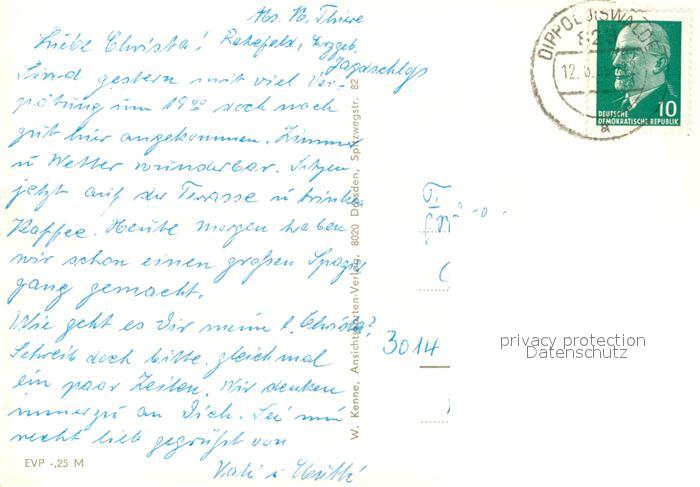 Abs. W. Thiere
Rehefeld, Erzgeb.
Jagdschloß
Liebe Christa!
Sind gestern mit viel Ver-
spätung um 19 00 doch noch
gut hier angekommen. Zimmer
u Wetter wunderbar. Sitzen
jetzt auf der Terasse u trinken
Kaffee. Heute morgen haben
wir schon einen großen Spazier
gang gemacht.
Wie geht es Dir meine l. Christa?
Schreib doch bitte gleich mal
ein paar Zeilen. Wir denken
immerzu an Dich. Sei nun
recht lieb gegrüßt von
Vati u Mutti
EVP -,25 M
W. Kenne, Ansichtskarten-Verlag, 8020 Dresden, Spitzwegstr. 82
DIPPOLDISWALDE
82
12.
10
DEUTSCHE
DEMOKRATISCHE REPUBLIK
3014
privacy protection
Datenschutz